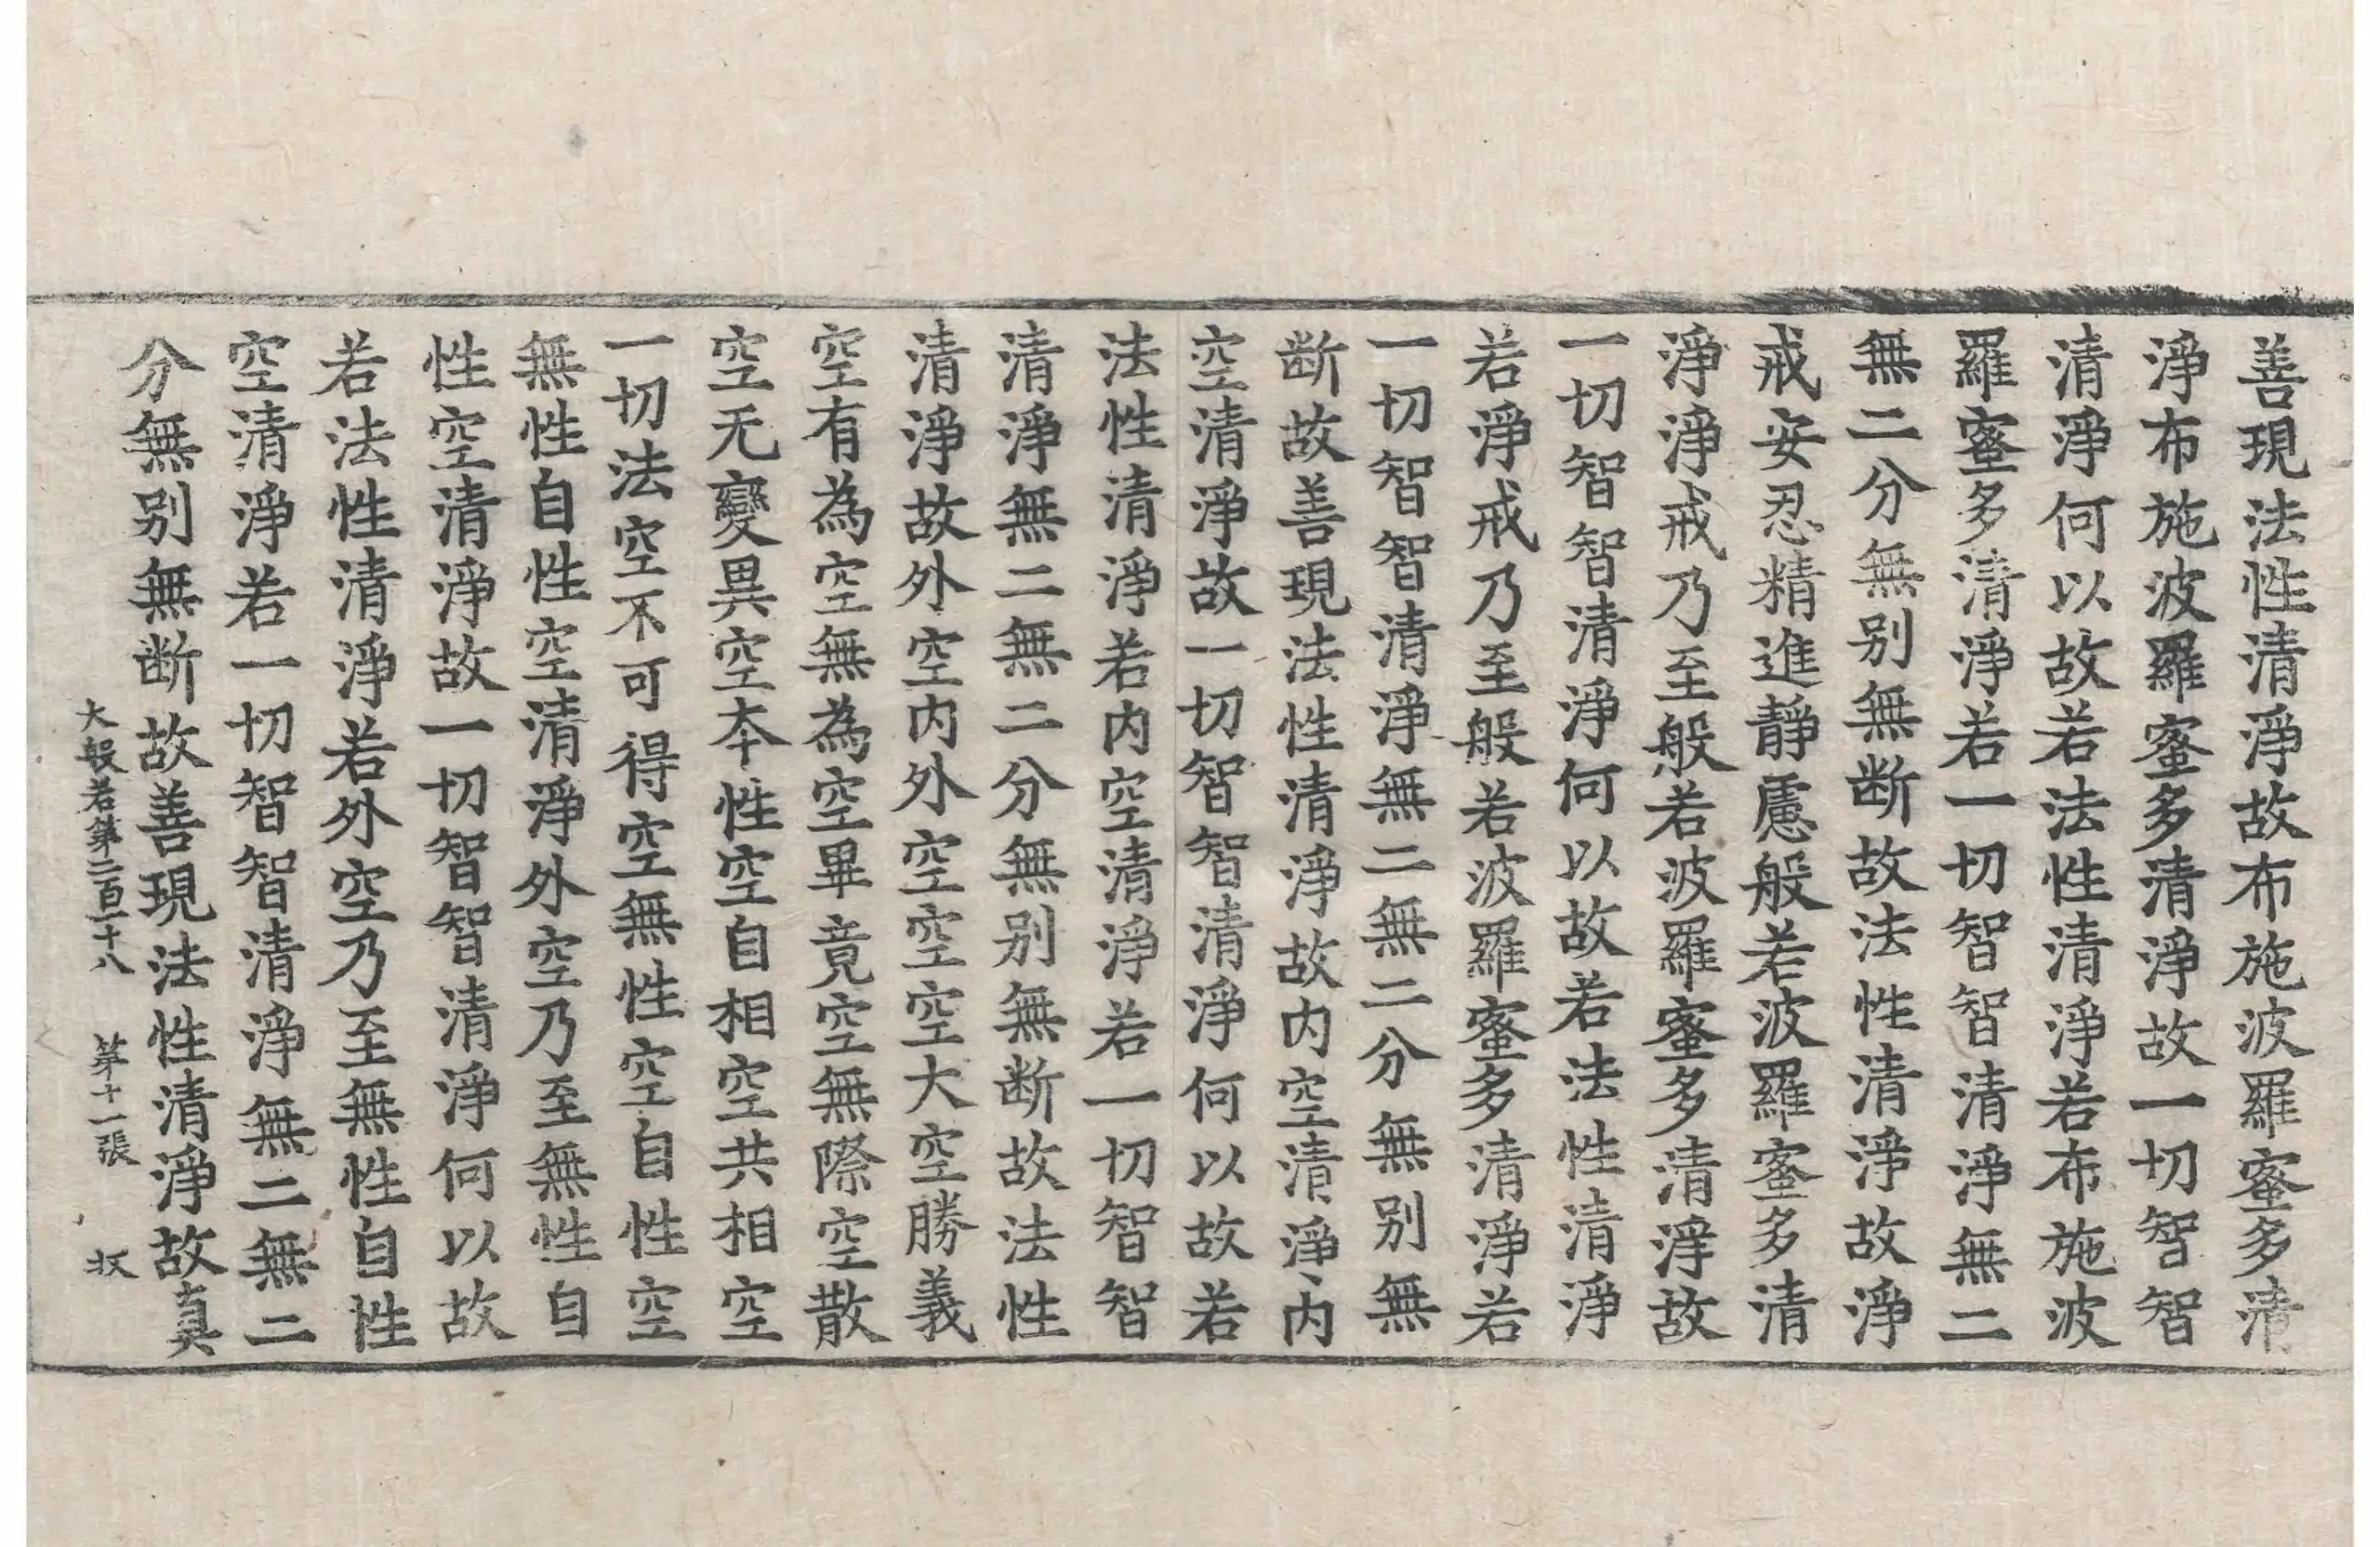 善現法性清淨故布施波羅蜜多清
淨布施波羅蜜多清淨故一切智智
清淨何以故若法性清淨若布施波
羅蜜多清淨若一切智智清淨無二
無二分無别無断故法性清淨故淨
戒安忍精進靜慮般若波羅蜜多清
淨淨戒乃至般若波羅蜜多清淨故
一切智智清淨何以故若法性清淨
若淨戒乃至般若波羅蜜多清淨若
一切智智清淨無二無二分無别無
断故善現法性清淨故内空清淨内
空清淨故一切智智清淨何以故若
法性清淨若内空清淨若一切智智
清淨無二無二分無别無断故法性
清淨故外空内外空空空大空勝義
空有為空無為空畢竟空無際空散
空无變異空夲性空自相空共相空
一切法空不可得空無性空自性空
無性自性空清淨外空乃至無性自
性空清淨故一切智智清淨何以故
若法性清淨若外空乃至無性自性
空清淨若一切智智清淨無二無二
分無别無断故善現法性清淨故真
大般若第二百二十八 第十一張